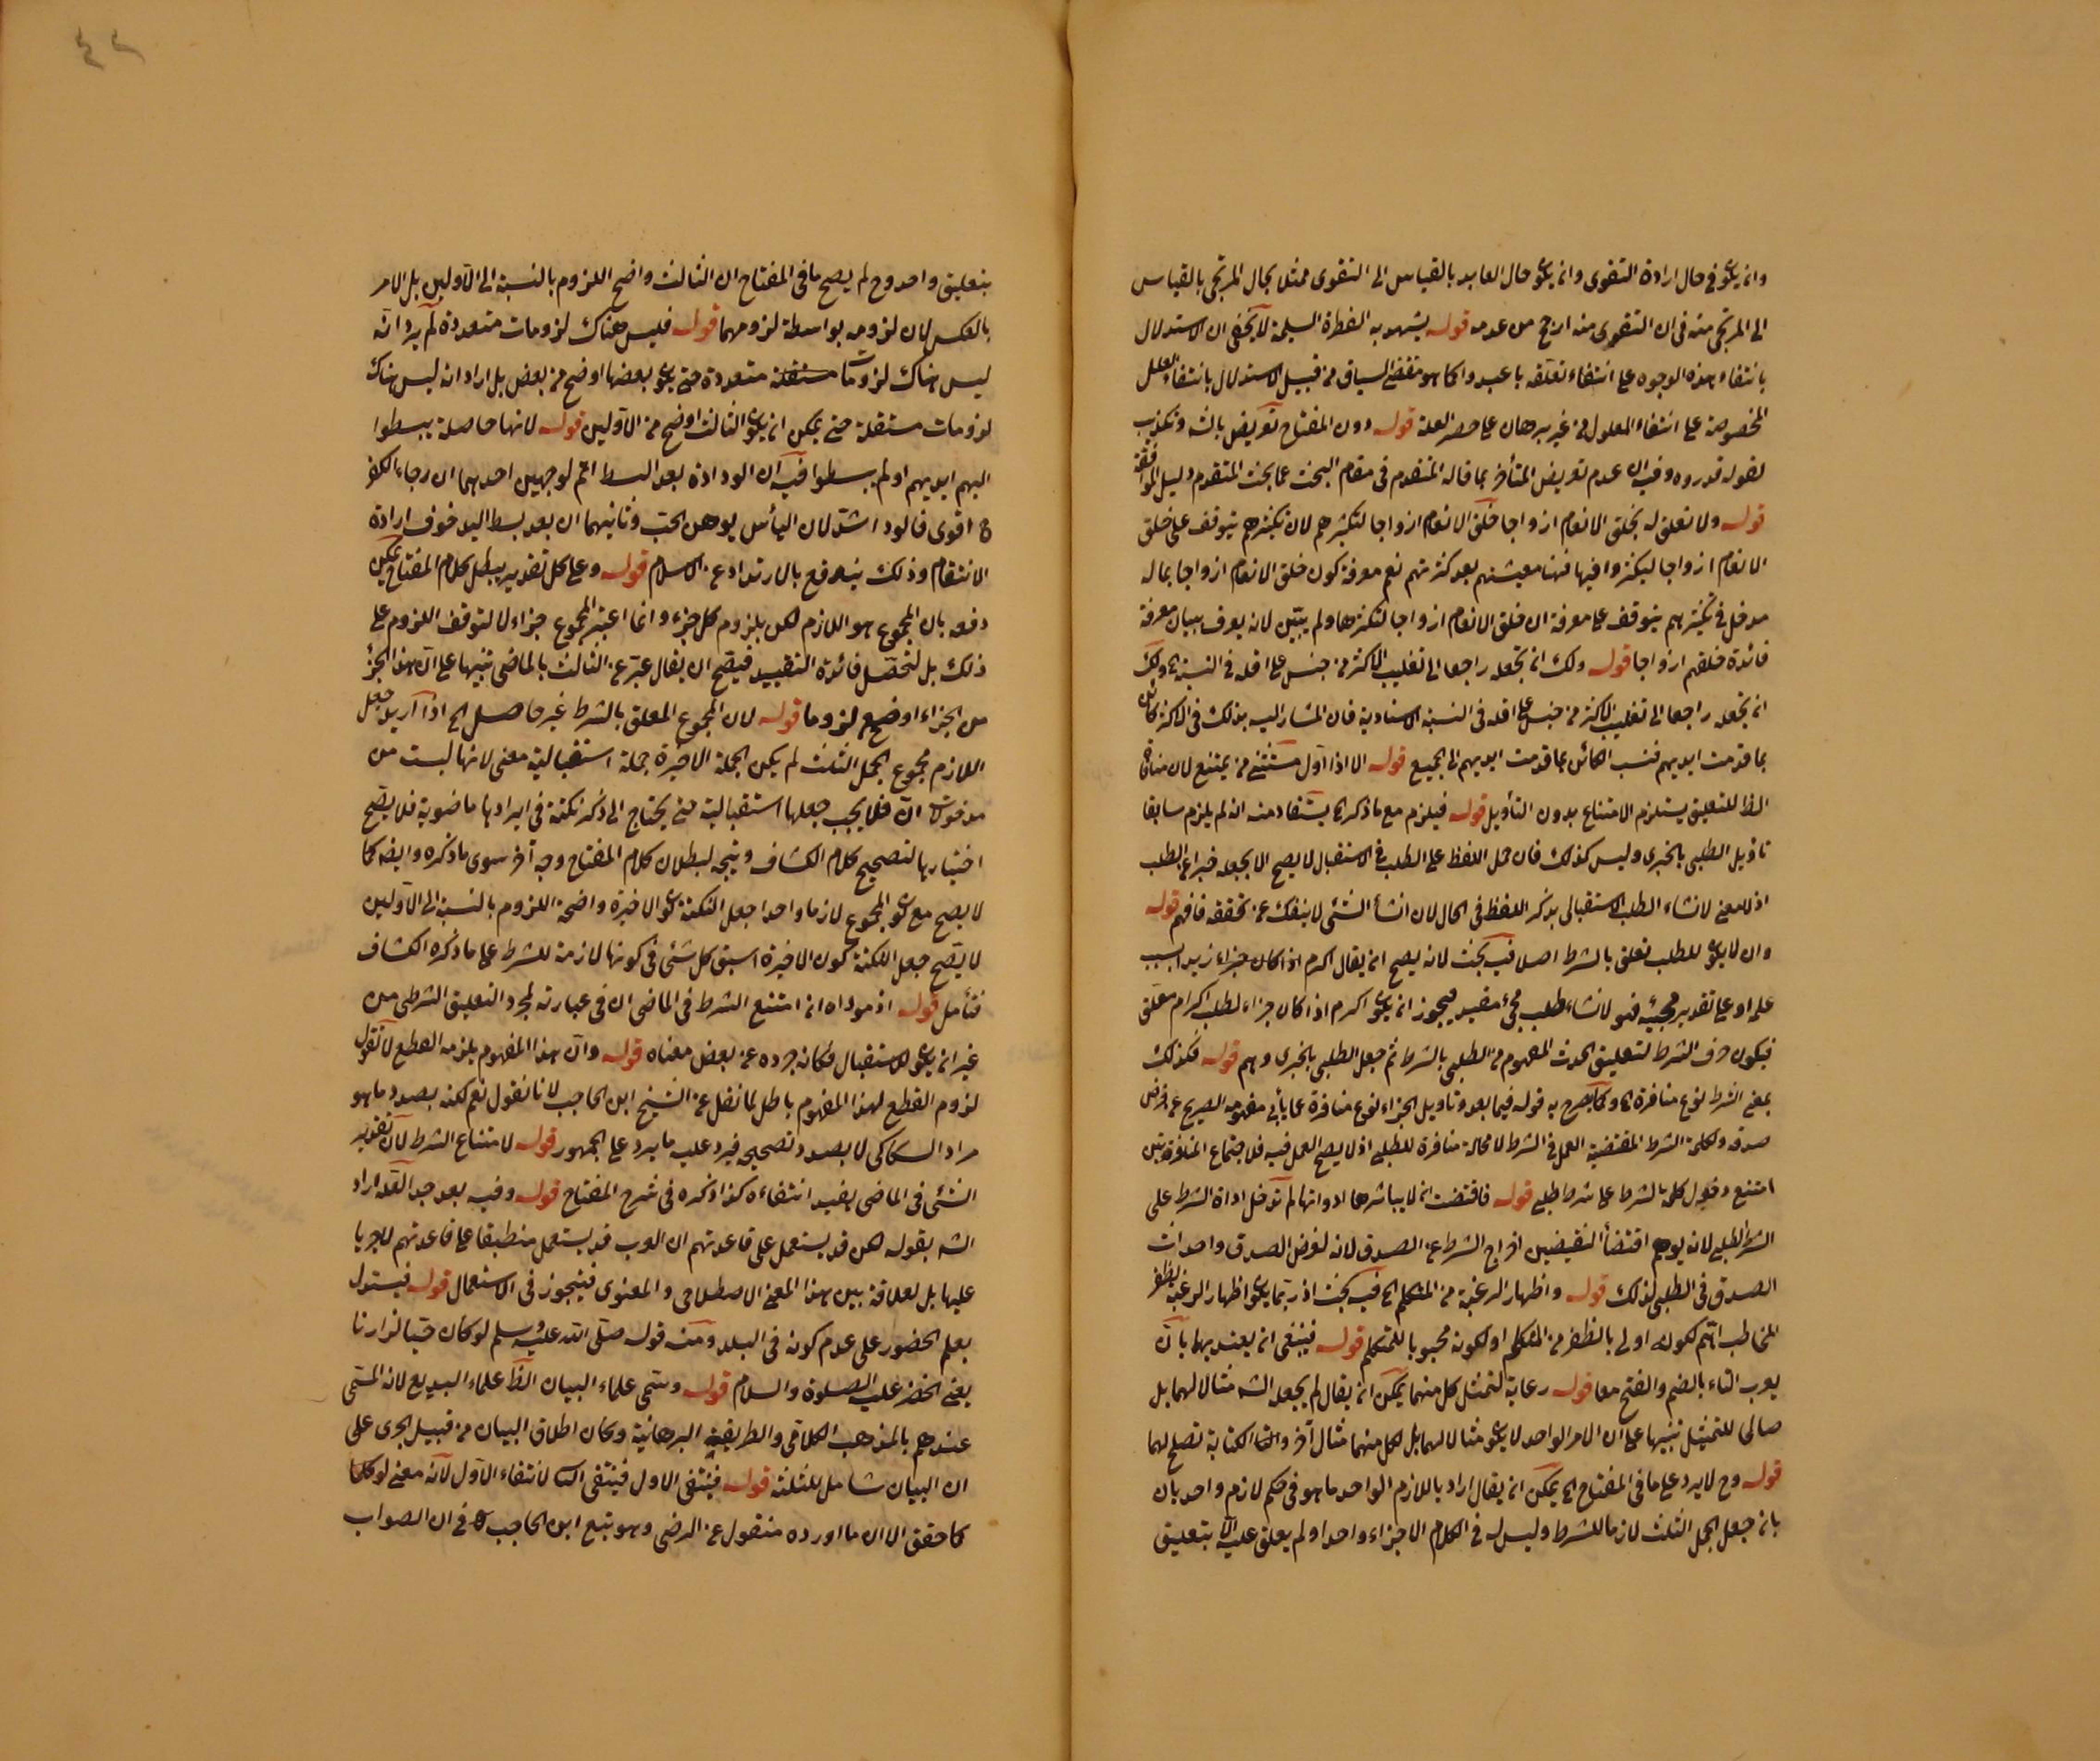 وان يكون في حال ارادة التقوى وان يكون حال العابد بالقياس الى التقوى ممثل بحال المرتجى بالقياس
الى المرتجى منه في ان التقوى منه ارجح من عدمه قوله يشهد به الفطرة السليمة لا يخفى ان الاستدلال
بانتفاء هذه الوجوه على انتفاء تعلقه باعبدوا كما هو مقتضى السياق من قبيل الاستدلال بانتفاء العلل
المخصوصة على انتفاء المعلول من غير برهان على حصر العلة قوله دون المفتاح تعريض بالشه وتكذيب
لقوله قدروه وفيه ان عدم تعريض المتأخر بما قاله المتقدم في مقام البحث عما بحث المتقدم دليل الموافقة
قوله ولا تعلق له بخلق الانعام ازواجا خلق الانعام ازواجا لتكثيرهم لان تكثيرهم يتوقف على خلق
الانعام ازواجا ليكثروا فيها معيشتهم بعد كثرتهم نعم معرفة كون خلق الانعام ازواجا بما له
مدخل في تكثيرهم يتوقف على معرفة ان خلق الانعام ازواجا لتكثرها ولم يبين لانه يعرف ببيان معرفة
فائدة خلقهم ازواجا قوله ولك ان تجعله راجعا الى تغليب الاكثر من جنس على اقله في النسبة ولك
ان تجعله راجعا الى تغليب الاكثر من جنس على اقله في النسبة الاسنادية فان المشار اليه بذلك في الاكثر كائن
بما قدمت ايديهم فنسب الكائن بما قدمت ايديهم الى الجميع قوله الا اذا اول مستثنى من يمتنع لان منافاة
الظ للتعليق يستلزم الامتناع بدون التأويل قوله فيلزم مع ما ذكر الخ يستفاد منه انه لم يلزم سابقا
تاويل الطلبي بالخبرى وليس كذلك فان حمل اللفظ على الطلب في الاستقبال لا يصح الا بجعله خبرا عن الطلب
اذ لا معنى لانشاء الطلب الاستقبالي بذكر اللفظ في الحال لان انشأ الشئ لا ينفك عن تحققه فافهم قوله
وان لا يكون للطلب تعلق بالشرط اصلا فيه بحث لانه يصح ان يقال اكرم اذا كان جزاء زيد اسبب
على او على تقدير مجيئه فهو لانشاء طلب مجئ مقيد فيجوز ان يكون اكرم اذا كان جزاء لطلب اكرام معلق
فيكون حرف الشرط لتعليق الحدث المفهوم من الطلبي بالشرط ثم جعل الطلبي بالخبرى وهم قوله فكذلك
بمعنى الشرط نوع منافرة الخ وكما يصرح به قوله فيما بعد وتاويل الجزاء نوع منافرة عما يأبى مفهومه الصريح عن فرض
صدقه ولكلمة الشرط المقتضية العمل في الشرط لا محالة منافرة للطلبي اذ لا يصح العمل فيه فلاجتماع المنافرتين
امتنع دخول كلمة الشرط على شرط طلبي قوله فاقتضت ان لا يباشرها ادواتها لم تدخل اداة الشرط على
الشرط الطلبي لانه يوهم اقتضأ النقيضين اخراج الشرط عن الصدق لانه لفرض الصدق واحداث
الصدق في الطلبي لذلك قوله واظهار الرغبة من المتكلم الخ فيه بحث اذ ربما يكون اظهار الرغبة لظفر
المخاطب اتم لكونه اولى بالظفر من المتكلم او لكونه محبوبا للمتكلم قوله فينبغى ان يعتد بهما بان
يعرب التاء بالضم والفتح معا قوله رعاية لتمثيل كل منهما يمكن ان يقال لم يجعل الشه مثالا لهما بل
صالح للتمثيل تنبيها على ان الامر الواحد لا يكون مثالا لهما بل لكل منهما مثال آخر والكتابة تصلح لهما
قوله وح لا يرد على ما في المفتاح الخ يمكن ان يقال اراد باللازم الواحد ما هو في حكم لازم واحد بان
بان جعل الجمل الثلث لازما للشرط وليس له في الكلام الا جزاء واحدا ولم يعلق عليه الا بتعليق
٤٢
بتعليق واحد وح لم يصح ما في المفتاح ان الثالث واضح اللزوم بالنسبة الى الاولين بل الامر
بالعكس لان لزومه بواسطة لزومهما قوله فليس هناك لزومات متعددة لم يرد انه
ليس هناك لزومات مستقلة متعددة حتى يكون بعضها اوضح من بعض بل اراد انه ليس هناك
لزومات مستقلة حتى يمكن ان يكون الثالث اوضح من الاولين قوله لانها حاصلة يبسطوا
اليهم ايديهم او لم يبسطوا فيه ان الودادة بعد البسط اتم لوجهين احدهما ان رجاء الكفر
ح اقوى فالود اشد لان اليأس يوهن الحب وثانيهما ان بعد بسط اليد خوف ارادة
الانتقام وذلك يندفع بالارتداد عن الاسلام قوله وعلى كل تقدير يبطل كلام المفتاح يمكن
دفعه بان المجموع هو اللازم لكن يلزوم كل جزء وانما اعتبر المجموع جزاء لا لتوقف اللزوم على
ذلك بل لتحصل فائدة التقييد فيصح ان يقال عبر عن الثالث بالماضى تنبيها على ان هذا الجزء
من الجزاء اوضح لزوما قوله لان المجموع المعلق بالشرط غير حاصل الخ اذا اريد جعل
اللازم مجموع الجمل الثلث لم يكن الجملة الاخيرة جملة استقبالية معنى لانها ليست من
مدخولات ان فلا يجب جعلها استقبالية حتى يحتاج الى ذكر نكتة في ايرادها ماضوية فلا يصح
اختيارها لتصحيح كلام الكشاف ويتجه لبطلان كلام المفتاح وجه آخر سوى ما ذكره وايضا كما
لا يصح مع كون المجموع لازما واحدا جعل النكتة كون الاخيرة واضحة اللزوم بالنسبة الى الاولين
لا يصح جعل النكتة كون الاخيرة اسبق كل شئ في كونها لازمة للشرط على ما ذكره الكشاف
فتأمل قوله اذ موداه ان امتنع الشرط في الماضى ان في عبارته لمجرد التعليق الشرطى من
غير ان يكون للاستقبال فكانه جرده عن بعض معناه قوله وان هذا المفهوم يلزمه القطع لا نقول
لزوم القطع لهذا المفهوم باطل لما نقل عن الشيخ ابن الحاجب لانا نقول نعم لكنه بصدد ما هو
مراد السكاكى لا بصدد تصحيحه فيرد عليه ما يرد على الجمهور قوله لامتناع الشرط لان تقدير
الشئ في الماضى يفيد انتفاءه كذا ذكره في شرح المفتاح قوله وفيه بعد جدا لعله اراد
الشه بقوله لكن قد يستعمل على قاعدتهم ان العرب قد يستعمل منطبقا على قاعدتهم لا جريا
عليها بل لعلاقة بين هذا المعنى الاصطلاحى والمعنوى فيتجوز في الاستعمال قوله فيستدل
بعلم الحضور على عدم كونه في البلد ومنه قوله صلى الله عليه وسلم لو كان حيا لزارنا
يعنى الخضر عليه الصلوة والسلام قوله وسمى علماء البيان الظ علماء البديع لانه المسمى
عندهم بالمذهب الكلامى والطريقة البرهانية وكان اطلاق البيان من قبيل الجرى على
ان البيان شامل للثلثة قوله فينتفى الاول فينتفى الثانى لانتفاء الاول لانه معنى لو كما
كما حقق الا ان ما اورده منقول عن الرضى وهو تبع ابن الحاجب في ان الصواب